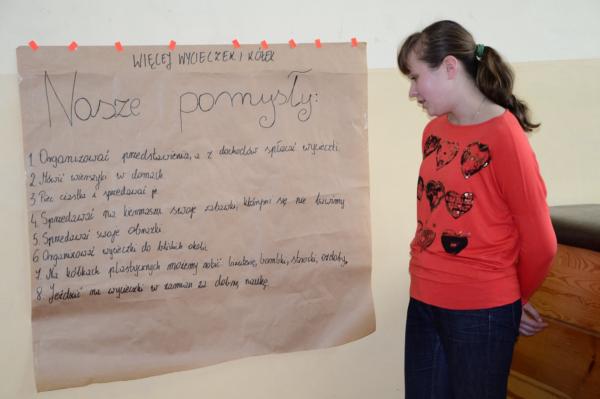 WIĘCEJ WYCIECZEK I KÓŁEK
Nasze pomysły:
1 Organizować przedstawienia, a z dochodów spłacać wycieczki.
2 Mówić wierszyki w domach
3 Piec ciastka i sprzedawać je.
4. Sprzedawać na kiermaszu swoje zabawki, którymi się nie bawimy
5. Sprzedawać swoje obrazki.
6 Organizować wycieczki do bliskich okolic
7 Na kółkach plastycznych możemy robić laurki, bombki, stroiki, ozdoby,
8. Jeździć na wycieczki w zamian za dobrą naukę.